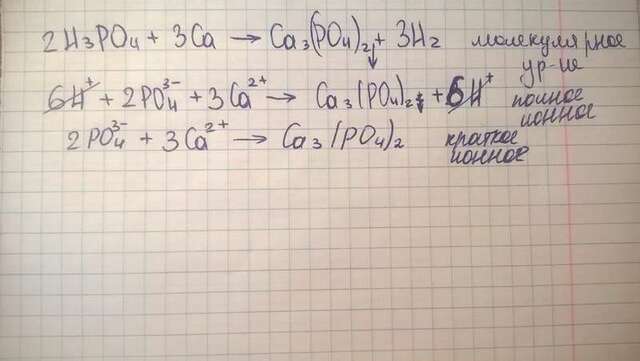 2H₃PO₄ + 3Ca → Ca₃(PO₄)₂↓ + 3H₂ молекулярное
ур-ие
6H⁺ + 2PO₄³⁻ + 3Ca²⁺ → Ca₃(PO₄)₂↓ + 6H⁺ полное
ионное
2PO₄³⁻ + 3Ca²⁺ → Ca₃(PO₄)₂ краткое
ионное